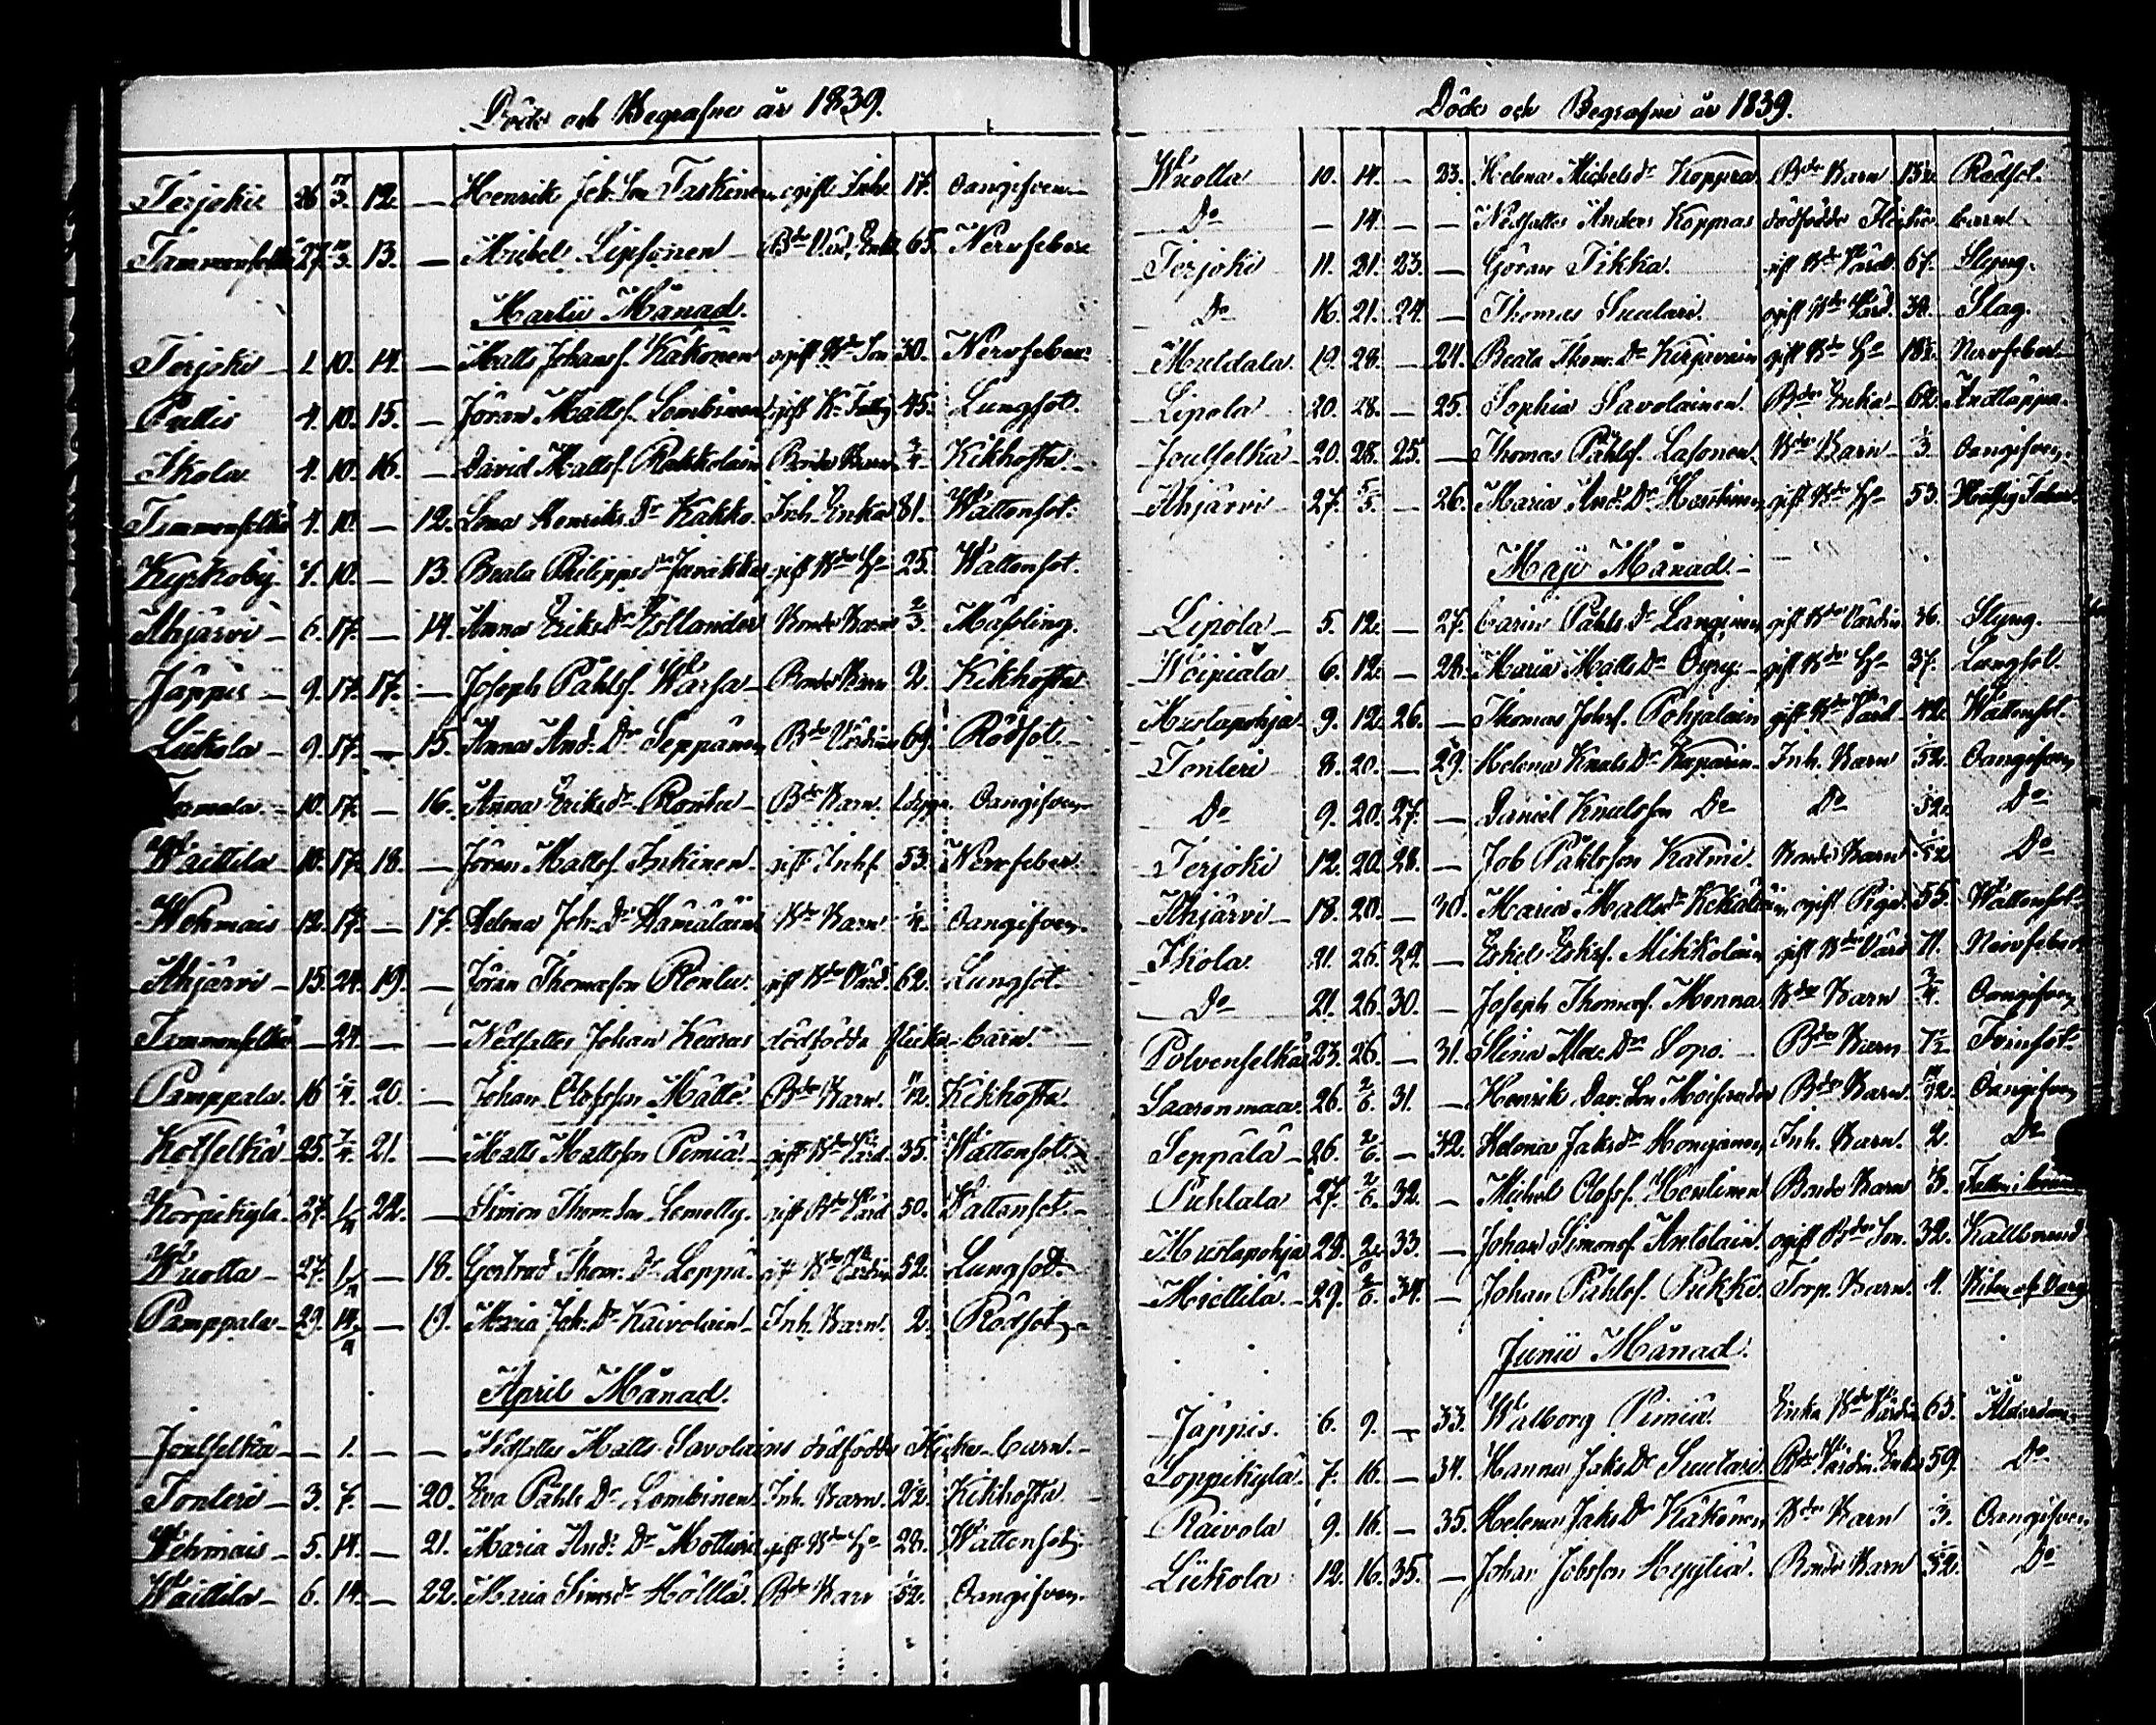 Döde och Begrafne år 1839.
Terjoki 26 17/3. 12. — Henrik Joh. Son Taskinen ogift Inh. 17. Oangifven
Tammenselkä 27. 10/3. 13. — Michel Lipsonen Bde Värd, Enkl. 65. Nervfeber
Martii Månad.
Terjoki 1. 10. 14. — Matts Johansf. Käkönen ogift Bde Son 30. Nervfeber.
Pullis 4. 10. 15. — Jöran Mattsf. Lombinen gift K. Fattig 45. Lungsot.
Ikola 4. 10. 16. — David Mattsf. Rakkolain Bonde Barn 3/4 Kikhosta
Tammenselkä 4. 10. — 12. Lena Henriks Dr Kakko. Inh. Enka 81. Wattensot.
Kyrkoby 4. 10. — 13. Beata Philipps dr Junakka gift Bde Ho 25. Wattensot.
Ahjärvi 6. 17. — 14. Anna Eriks Dr Estlander Bonde Barn 2/3. Mässling.
Jäppis 9. 17. 17. — Joseph Påhlsf. Warsa Bonde Barn 2. Kikhosta
Liikola 9. 17. — 15. Anna And. Dr Seppänen Bde Värdinna 69. Rödsot.
10. 17. — 16. Anna Eriks dr Rontu Bde Barn. 1 dygn. Oangifven
Waittila 10. 17. 18. — Jöran Mattsf. Inkinen gift Inhs 53. Nervfeber.
Wehmais 12. 17. — 17. Helena Joh. Dr Hämäläin Bde Barn 1/4. Oangifven.
Ahjärvi 15. 24. 19. — Jöran Thomasson Rontu gift Bde Värd. 62. Lungsot.
Tammenselkä — 24. — — Nådfattes Johan Keuras dödfödde flicke barn.
Pamppala. 16 1/4. 20. — Johan Olofsson Mätte. Bde Barn. 11/12. Kikhosta.
Kotselkä 25. 7/4. 21. — Matts Mattsson Pimiä. gift Bde Värd 35. Wattensot.
Korpikylä. 27. 1/4 22. — Simon Thom. Son Lemetty. gift Bde Värd 50. Wattensot.
Wuotta 27. 1/4 — 18. Gertrud Thom. Dr Loppa. gift Bde Värdin 52. Lungsot.
Pamppala 29. 14/4 — 19. Maria Joh. Dr Kaivolain Inh. Barn. 2. Rödsot
April Månad.
Joutselkä — 1. — — Nådfattes Matts Savolains dödfödde flicke barn.
Tonteri 3. 7. — 20. Eva Påhls Dr Lombinen. Inh. Barn. 2½. Kikhosta
Wehmais 5. 14. — 21. Maria And. Dr gift Bde Ho 20. Wattensot.
Waittila 6. 14. — 22. Maria Sims dr Hölttä. Bde Barn 1/52. Oangifven.
Döde och Begrafne år 1839.
Wuotta 10. 14. — 23. Helena Michels dr Koppra. Bde Barn 13½. Rödsot.
Do — 14. — — Nådfattes Anders Koppras dödfödde flicke barn
Terjoki 11. 21. 23. — Göran Tikka. gift Bde Värd. 67. Styng.
Do 16. 21. 24. — Thomas Suutari. ogift Bde Värd. 30. Slag.
Muldala 19. 28. — 24. Beata Thom. Dr Kirjavain gift Bde Ho 18½. Nervfeber.
Lipola 20. 28. — 25. Sophia Savolainen. Bde Enka 62. Andtäppa.
Joutselkä 20. 28. 25. — Thomas Påhlsf. Lasonen. Bde Barn 1/3. Oangifven.
Ahjärvi 27. 5/5. — 26. Maria And. Dr Heikinen gift Bde Ho 53.
Maji Månad.
Lipola 5. 12. — 27. Carin Påhls Dr Langinen gift Bde Värdin 36. Styng.
Weipiälä 6. 12. — 28. Maria Matts Dr gift Bde Ho 37. Lungsot.
Mustapohja 9. 12. 26. — Thomas Johsf. Pohjalain gift Bde Värd 42. Wattensot.
Tonteri 8. 20. — 29. Helena Knuts Dr Kaparin Inh. Barn 1/52. Oangifven
Do 9. 20. 27. — Daniel Knutsson Do Do 1/52. Do
Terjoki 12. 20. 28. — Job Påhlsson Katme. Bonde Barn 1/52 Do
Ahjärvi 18. 20. — 30. Maria Matts dr Kekäläin, ogift Piga 55. Wattensot.
Ikola 21. 26. 29. — Eskel Eskelsf. Mikkolain gift Bde Värd 71. Nervfeber
Do 21. 26. 30. — Joseph Thomasf. Monna Bde Barn 3/4. Oangifven
Polvenselkä 23. 26. — 31. Stina Dr Sopo. Bde Barn 7½ Tvinsot.
Saarenmaa. 26. 2/6. 31. — Henrik Dav. Son Moisander Bde Barn. Oangifven
Seppälä 26. 2/6. — 32. Helena Jaks dr Mongonen, Inh. Barn. 2. Do
Puhtala 27. 2/6. 32. — Michel Olofsf. Henlinen Bonde Barn 3. Fallen i brunn
Mustapohja 28. 2/6 33. — Johan Simonsf. Antolain. ogift Bde Son. 32. Kallbrand
Miettilä. 29. 2/6. 34. — Johan Påhlsf. Pukki. Torp. Barn. 4. Rifven af Varg
Junii Månad.
Jäppis. 6. 9. — 33. Walborg Pimiä. Enka Bde Värdin 65. Ålderdom.
Loppikylä. 7. 16. — 34. Hanna Jaks Dr Suutari. Bde Värdin. Enka 59. Do
Raivola 9. 16. — 35. Helena Jaks Dr Käkönen Bde Barn 1/3. Oangifven.
Liikola 12. 16. 35. — Johan Jobsson Heyliä. Bonde Barn 1/52. Do